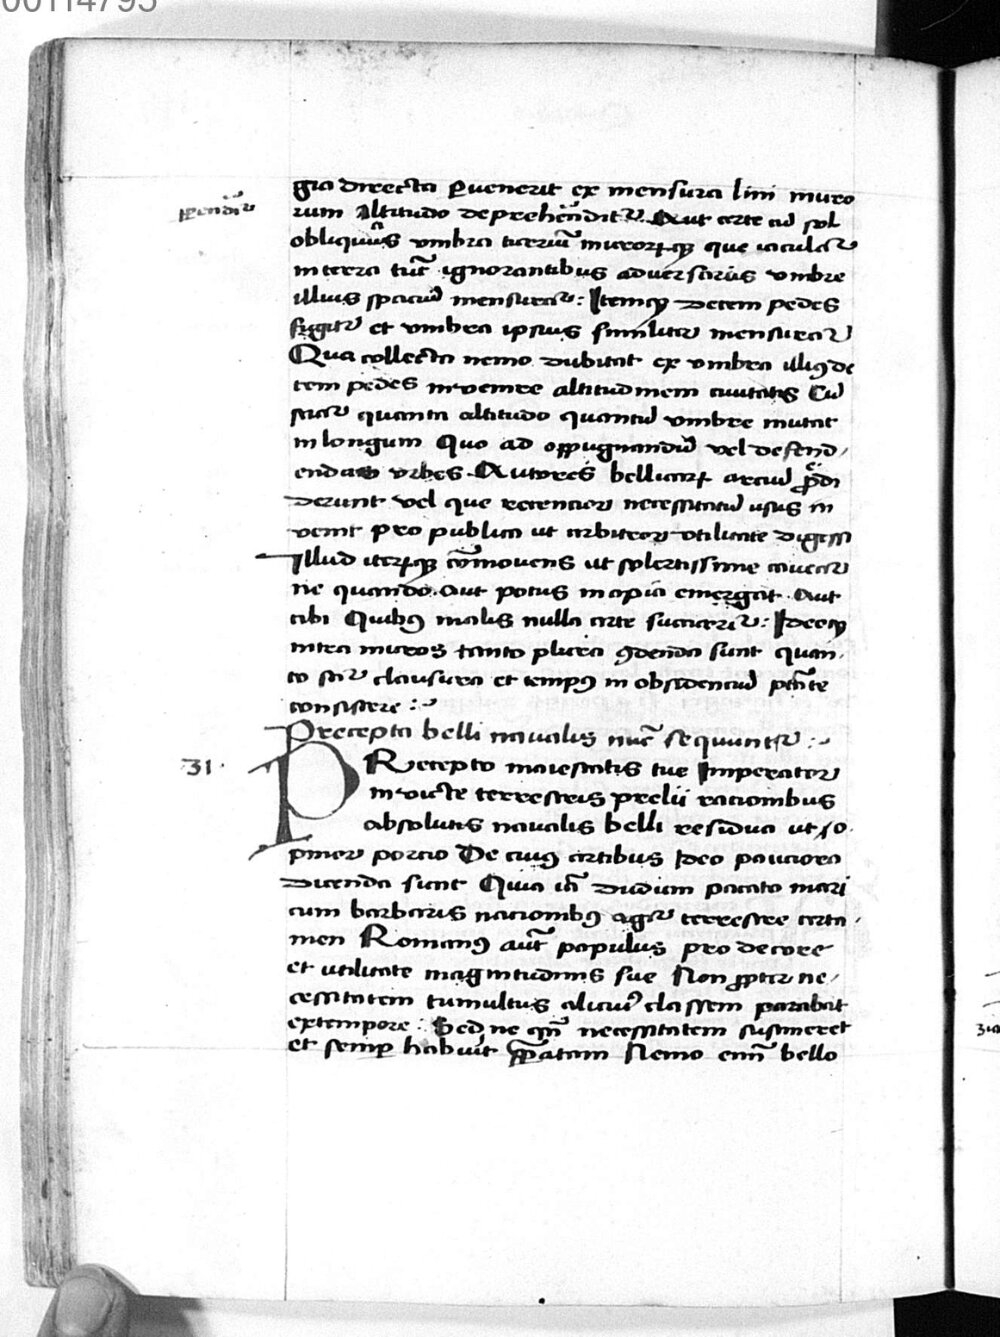 00114795
gia directa ꝑuenerit ex mensura lini muro
rum Altitudo deprehēnditᷣ Aut certe cū sol
obliquūs vmbra turriū murorūqꝫ que iaculatᷣ
in terra tūc ignorantibus aduersariis vmbre
illius spaciū mensuratᷣ : Itemqꝫ decem pedes
figitᷣ et vmbra ipsius similiter mensuratᷣ
Qua collecta nemo dubitat ex vmbra illiꝰ de
cem pedes inuenire altitudinem ciuitatis Cū
sciatᷣ quanta altitudo quantū vmbre mutat
in longum Quo ad oppugnandū vel defend
endas vrbes Autores bellicarꝝ arciū p̄di
derunt vel que recencior necessitatū usus in
uenit pro publica ut arbitror vtilitate digessi
Illud iterūqꝫ cōmouens ut solertissime caueatᷣ
ne quando aut potus inopia emergat Aut
cibi Quibꝰ malis nulla arte succurritᷣ : Ideoqꝫ
intra muros tanto plura ꝯdēnda sunt quan
to scitᷣ clausura et tempꝰ in obsidenciū ptāte
consistere :
Precepta belli naualis nūc sequuntᷣ :
31 PRecepto maiestatis tue Imperator
inuicte terrestris prelii racionibus
absolutis naualis belli residua ut o
pinor porcio De cuiꝰ artibus Ideo pauciora
dicenda sunt Quia iā dudum pacato mari
cum barbaris nacionibꝰ agitᷣ terrestre certa
men Romanꝰ aūt populus pro decore
et utilitate magnitudinis sue Non ꝓpter ne
cessitatem tumultus alicuiꝰ classem parabat
extempore : Sed ne qn̄ necessitatem sustineret
et semꝑ habuit ꝑꝑatam Nemo enī bello